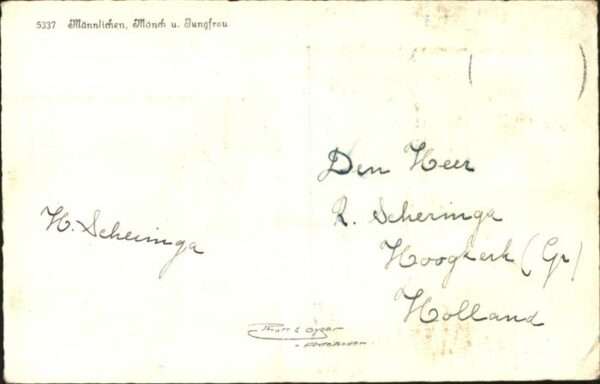 5337 Männlichen, Mönch u. Jungfrau
Den Heer
R. Scheringa
Hoogkerk (Gr)
Holland
H. Scheringa